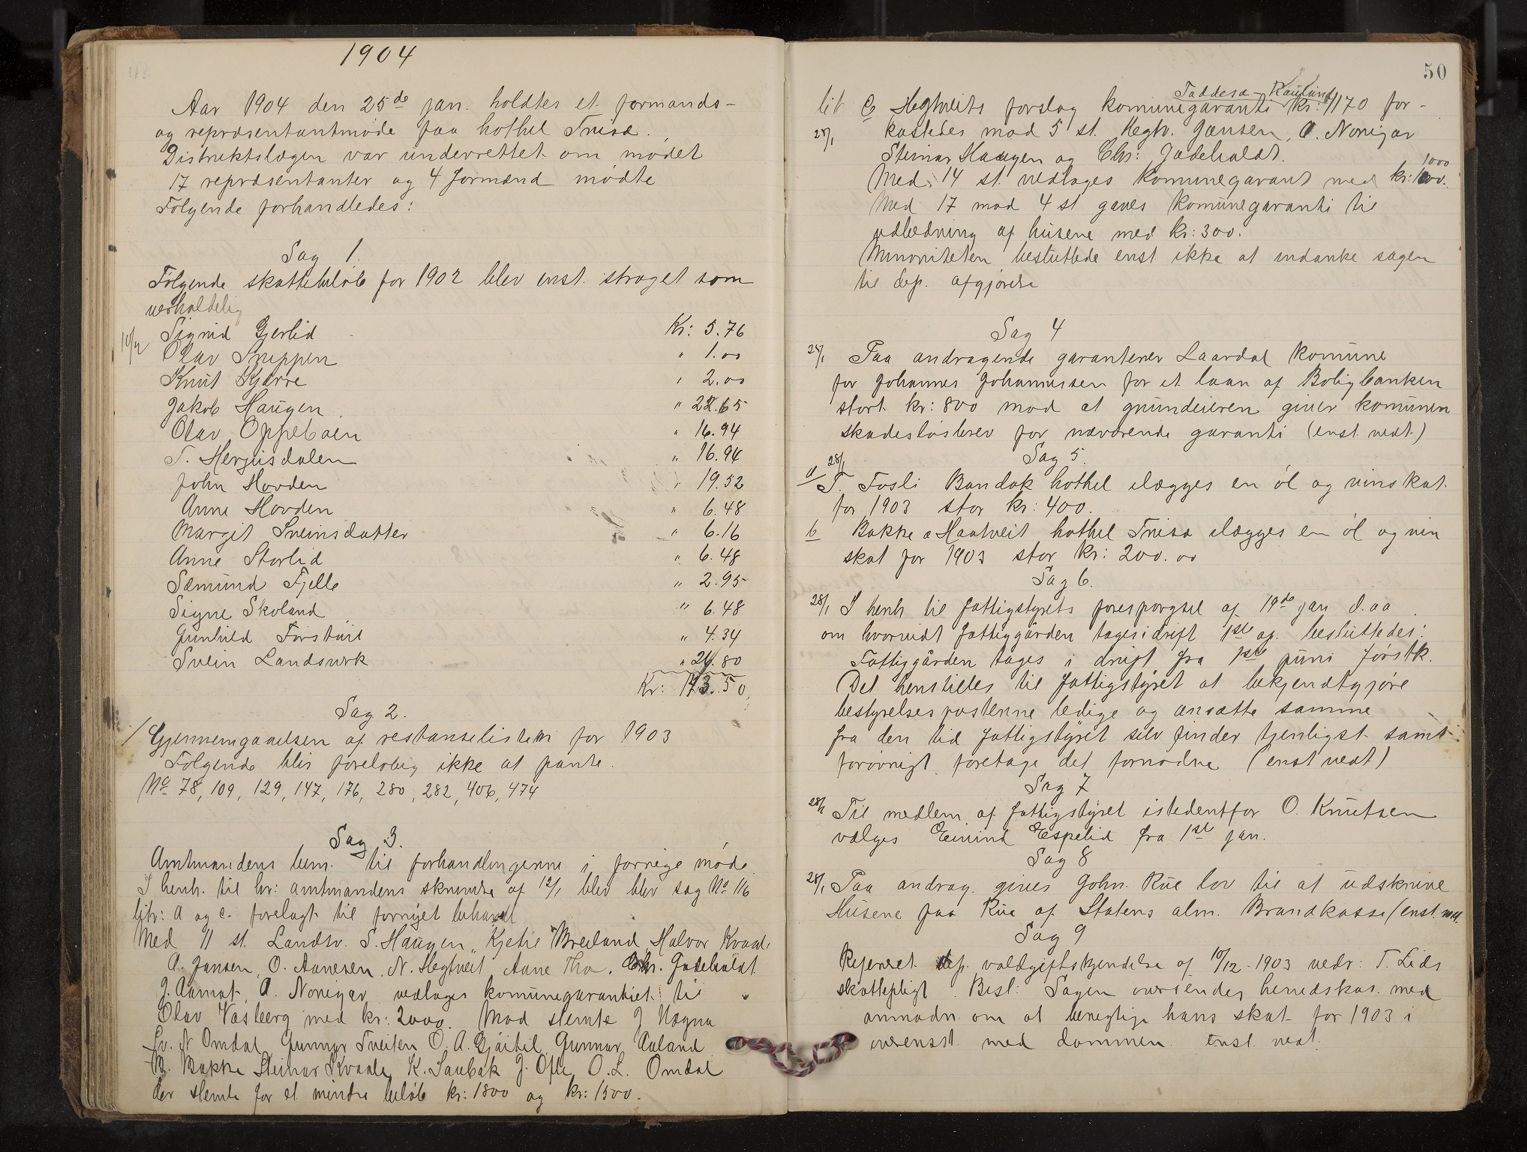 1904
Aar 1904 den 25de jan. holdtes et formands-
og repræsentantmøde paa hothel Trisæ.
Distriktslægen var underrettet om mødet
17 repræsentanter og 4 formænd mødte
Følgende forhandledes:
Sag 1.
Følgende skattebeløb for 1902 blev enst. strøget som
uerholdelig
Sigrid Gjerlid Kr: 5.76
Olav Gruppen " 1.00
Knut Kjærre " 2.00
Jakob Haugen " 22.65
Olav Oppeboen " 16.94
S. Mergisdalen " 16.94
John Hovden " 19.52
Anne Hovden " 6.48
Margit Sveinsdatter " 6.16
Anne Storlid " 6.48
Sæmund Fjelle " 2.95
Signe Skoland " 6.48
Gunhild Forstøil " 4.34
Svein Landsverk " 24.80
Kr: 143.50
Sag 2.
Gjennemgaaelsen af restanselisten for 1903
Følgende blir foreløbig ikke at pante.
No 78, 109, 129, 147, 176, 280, 282, 406, 474
Sag 3.
Amtmandens bem. til forhandlingerne i forrige møde
I henh. til hr: amtmandens skrivelse af 12/1 blev blev sag No 116
litr: A og C. forelagt til fornyet behandl
Med 11 st. Landsv. S. Haugen, Kjetil Breiland, Halvor Kvaale
A. Jansen, O. Aanesen, N. Hegtveit Aane Tho. Chr. Jadeholdt
J. Aamot, A. Norigar vedtages komunegarantiet til
Olav Vasberg med kr: 2000. Mod stemte J Nægna
Lv. N Omdal, Gunnar Tveiten O. A. Gjøitil, Gunnar Auland
B. Bakke Steinar Kvaale K. Saubak J. Ofte, O. L. Omdal
der stemte for et mindre beløb kr: 1800 og kr: 1500.
50
Taddesa-Rauland
lit C Hegtveits forslag komunegaranti kr: 1170 for-
25/1 kastedes mod 5 st. Hegtv. Jansen, A. Norigar
Steinar Haugen og Chr: Jadeholdt.
1000
Med 14 st. vedtages komunegaranti med kr:
Med 17 mod 4 st gaves komunegaranti til
udledning af husene med kr: 300.
Minoriteten besluttede enst ikke at indanke sagen
til dep. afgjørelse
Sag 4
25/1 Paa andragende garanterer Laardal komune
for Johannes Johannessen for et laan af Boligbanken
stort kr: 800 mod at grundeieren giver komunen
skadesløsbrev for næværende garanti (enst. vedt.)
Sag 5.
28/1
a T. Fosli Bandak hothel ilægges en øl og vinskat
for 1903 stor kr: 400.
b Bakke & Haatveit hothel Trisæ ilægges en øl og vin
skat for 1903 stor kr: 200.00
Sag 6.
28/1 I henh til fattigstyrets forespørgsel af 19de jan d.aa
om hvorvidt fattiggården tages i drift 1ste ap. besluttedes:
Fattiggården tages i drift fra 1ste juni førstk.
Det henstilles til fattigstyret at bekjendtgjøre
bestyrelsesposterne ledige og ansætte samme
fra den tid fattigstyret selv finder tjenligst samt
forøvrigt foretage det fornødne (enst vedt)
Sag 7
28/1 Til medlem af fattigstyret istedentfor O. Knutsen
vælges Eivind Espelid fra 1ste jan.
Sag 8
28/1 Paa andrag. gives John. Rue lov til at udskrive
Husene paa Rue af Statens alm. Brandkasse (enst ved.
Sag 9
Refereret dep. voldgiftskjendelse af 10/12-1903 vedr: T. Lids
skattepligt. Besl: Sagen oversendes herredskas. med
anmodn om at berigtige hans skat for 1903 i
overenst. med dommen. enst. vedt.